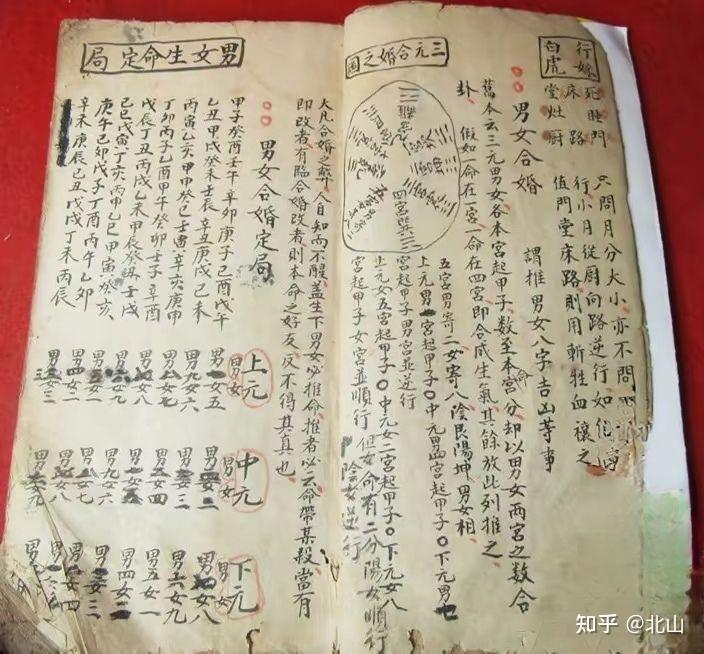 行嫁
白虎
死睡門
床路
堂灶厨
只問月分大小亦不問
行小月從厨向路逆行如
值門堂床路則用斬牲血禳之
男女合婚
謂推男女八字吉凶等事
舊本云三元男女各本宮起甲子数至本宮分却以男女两宮之数合
卦
假如一命在一宮一命在四宮即合成生氣其餘放此列推之
三元合婚之圖
五宮男寄二女寄八陰艮陽坤男女相
上元男一宮起甲子〇中元男四宮起甲子〇下元男七
宮起甲子男宮並逆行
上元女五宮起甲子〇中元女二宮起甲子〇下元女八
宮起甲子女宮並順行
但女命有二分陽女順行
陰女逆行
大凡合婚之弊人自知而不醒盖生下男女必推命推者必云命帶某殺當有
即改者有臨合婚改者則本命之好反不得其真也
男女生命定局
男女合婚定局
甲子癸酉壬午辛卯庚子己酉戊午
乙丑甲戌癸未壬辰辛丑庚戌己未
丙寅乙亥甲申癸巳壬寅辛亥庚申
丁卯丙子乙酉甲午癸卯壬子辛酉
戊辰丁丑丙戌乙未甲辰癸丑壬戌
己巳戊寅丁亥丙申乙巳甲寅癸亥
庚午己卯戊子丁酉丙午乙卯
辛未庚辰己丑戊戌丁未丙辰
上元
男女
男一女五
男九女六
男八女七
男七女八
男六女九
男五女一
男四女二
男三女三
中元
男女
男四女二
男三女三
男二女四
男一女五
男九女六
男八女七
男七女八
男六女九
下元
男女
男七女八
男六女九
男五女一
男四女二
男三女三
男二女四
知乎 @北山